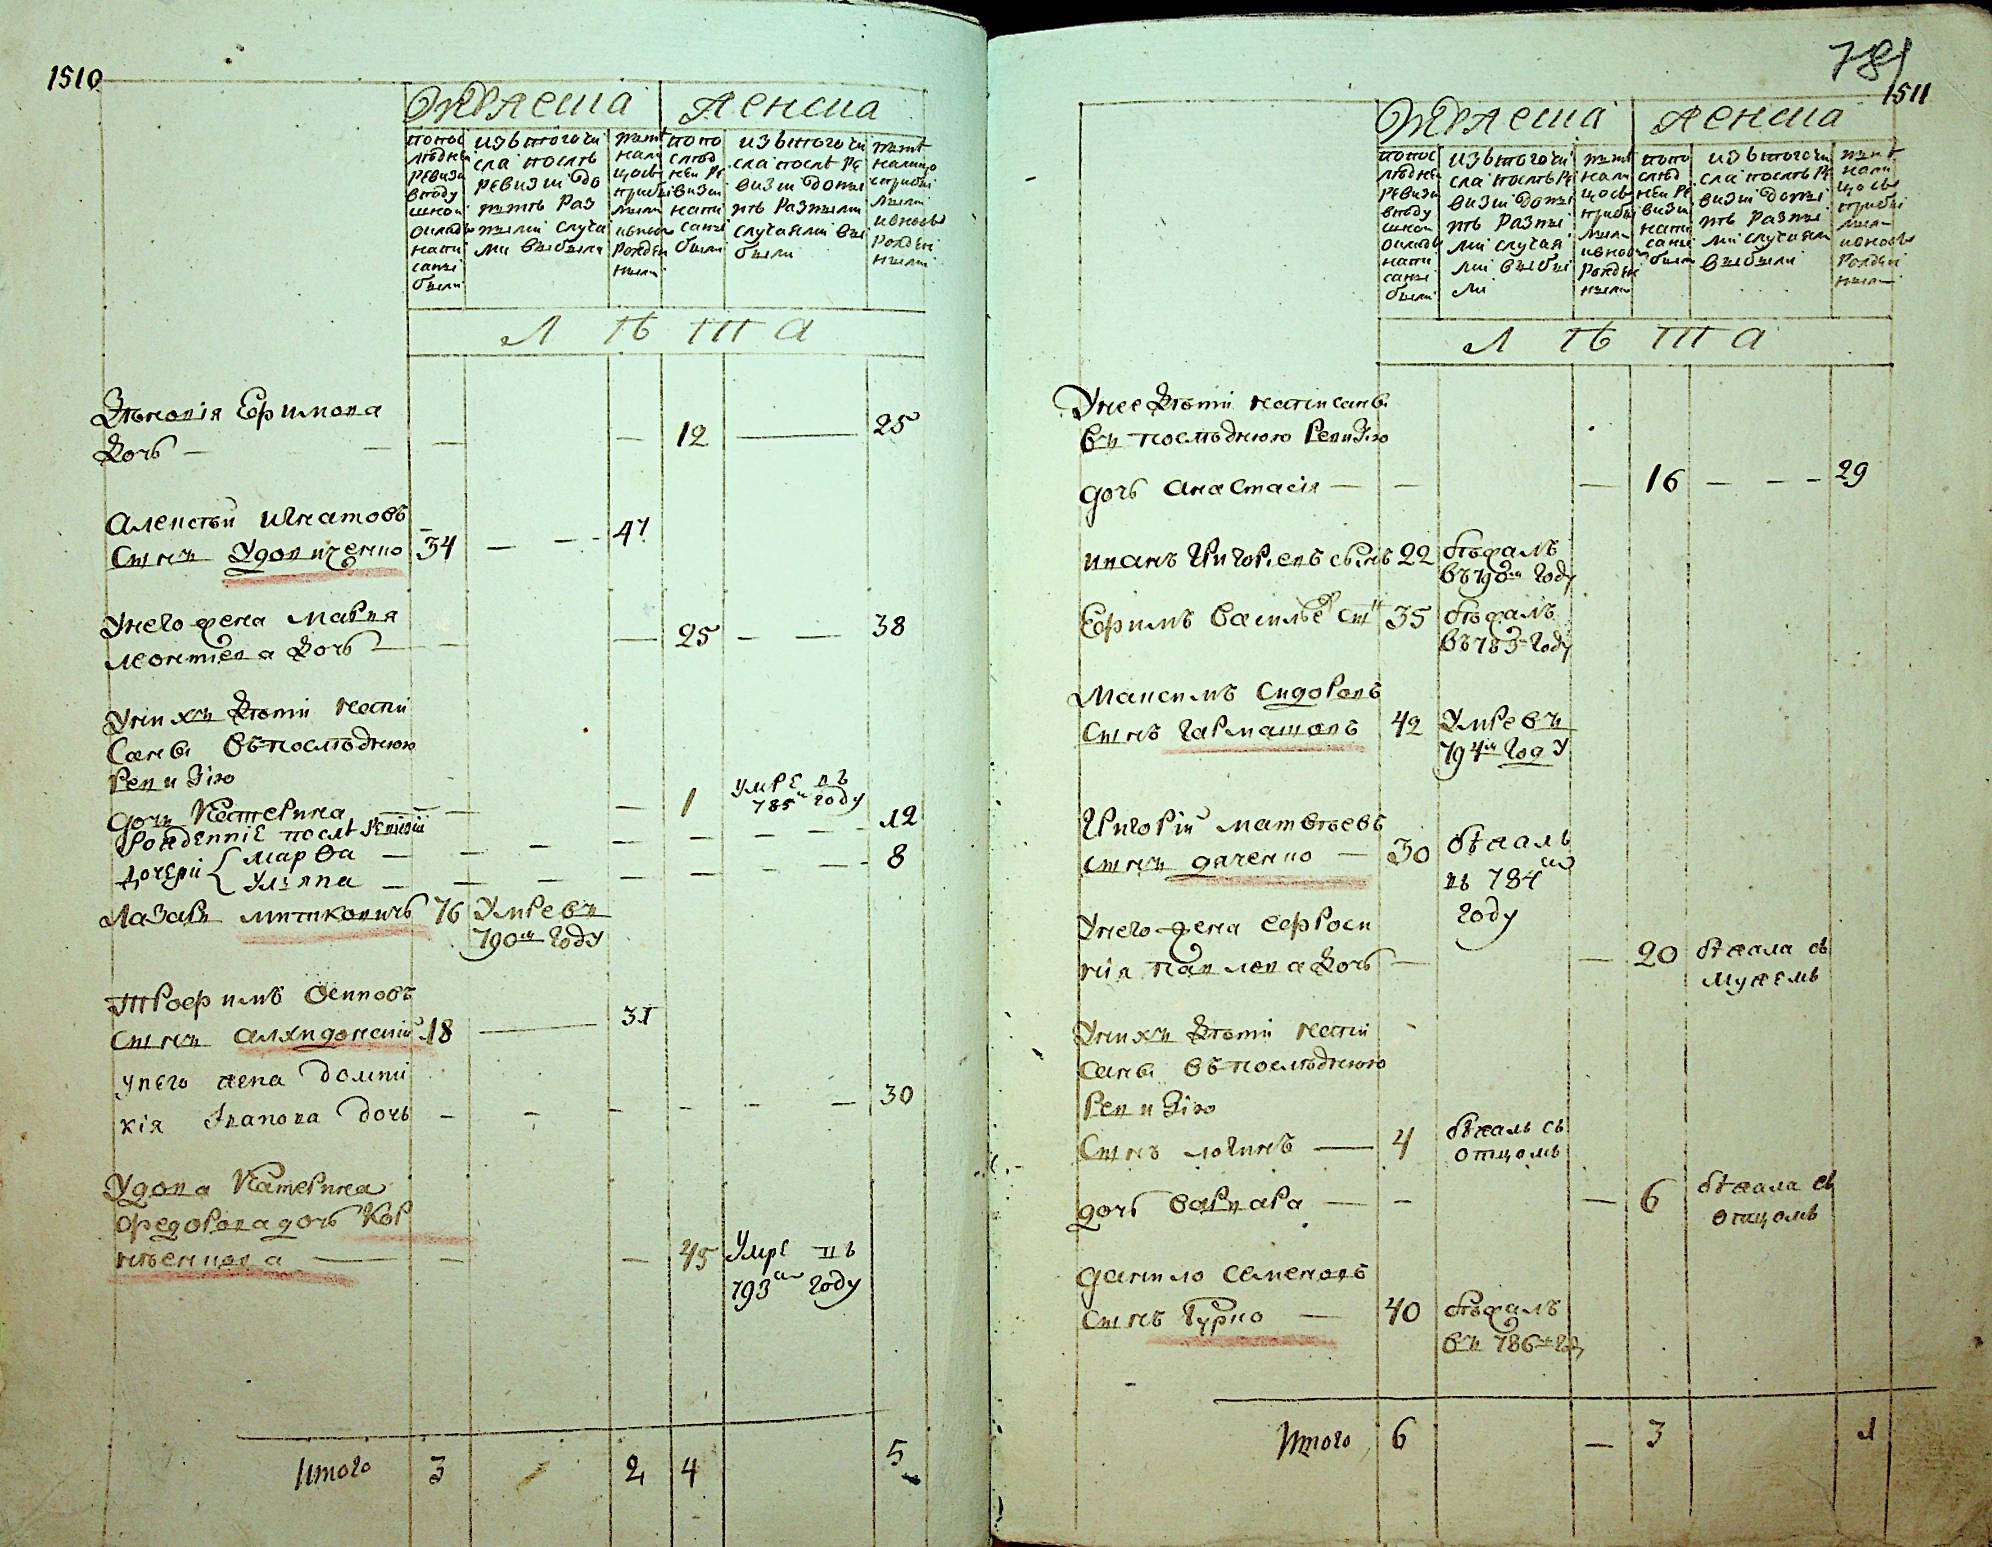 1510
Мужеска Женска
По пос
лѣдней
ревизи
въ году
написаны
были
изъ того чи
сла послѣ
ревизии до
нынѣ раз
ными случа
ми выбыли
нынѣ
нали
цо съ
прибы
лыми
и вновь
рожден
ными
по по
слѣд
ней ре
визии
напи
саны
были
изъ того чи
сла послѣ ре
визии до ны
нѣ разными
случаями вы
были
нынѣ
налицо
с прибы
лыми
и вновь
рожден
ными
Лѣта
Зѣновія Ефимова
дочь — — — — 12 — 25
Алексѣй Игнатовъ
сынъ Удовиченко 34 — — 47
У него жена Марья
Леонтиева дочь — — — 25 — — 38
У нихъ дѣти напи
саны въ послѣднюю
ревизію
дочь Катерина — — — 1 умре въ
785м году
рожденніе послѣ ревизіи
дочери Марѳа — — — — — — — 12
Уляна — — — — — — — 8
Лазарь Митиковичь 76 Умре въ
790м году
Трофимъ Осиповъ
сынъ Алхидонскій 18 — 31
у него жена Домни
кія Іванова дочь — — — — — — 30
Удова Катерина
Федорова дочь Кор
нѣенкова — — — 45 Умре въ
793м году
Итого 3 2 4 5
781
1511
Мужеска Женска
по пос
лѣдней
ревизи
въ году
написаны
были
изъ того чи
сла послѣ ре
визии до ны
нѣ разны
ми случая
ми выбы
ли
нынѣ
нали
цо съ
прибы
лыми
и вновь
рожде
ными
по по
слѣд
ней ре
визии
напи
саны
были
изъ того чи
сла послѣ ре
визии до ны
нѣ разны
ми случаями
выбыли
нынѣ
нали
цо съ
прибы
лыми
и вновь
рожден
ными
Лѣта
У нее дѣти написаны
въ послѣднюю ревизію
дочь Анастасія — — — 16 — — — 29
Иванъ Григорьевъ сынъ 22 бѣжалъ
въ 790м году
Ефимъ Василье сын 35 бѣжалъ
въ 783м году
Максимъ Сидоровъ
сынъ Гармашовъ 42 Умре въ
794м году
Григорій Матвѣевъ
сынъ Даченко — 30 бѣжалъ
въ 784м
году
У него жена Ефроси
нія Павлова дочь — — 20 бѣжала съ
мужемъ
У нихъ дѣти напи
саны въ послѣднюю
ревизію
сынъ Логинъ — 4 бѣжалъ съ
отцомъ
дочь Варвара — — — 6 бѣжала съ
отцомъ
Данило Семеновъ
сынъ Гурко — 40 бѣжалъ
въ 786м
Итого 6 — 3 1